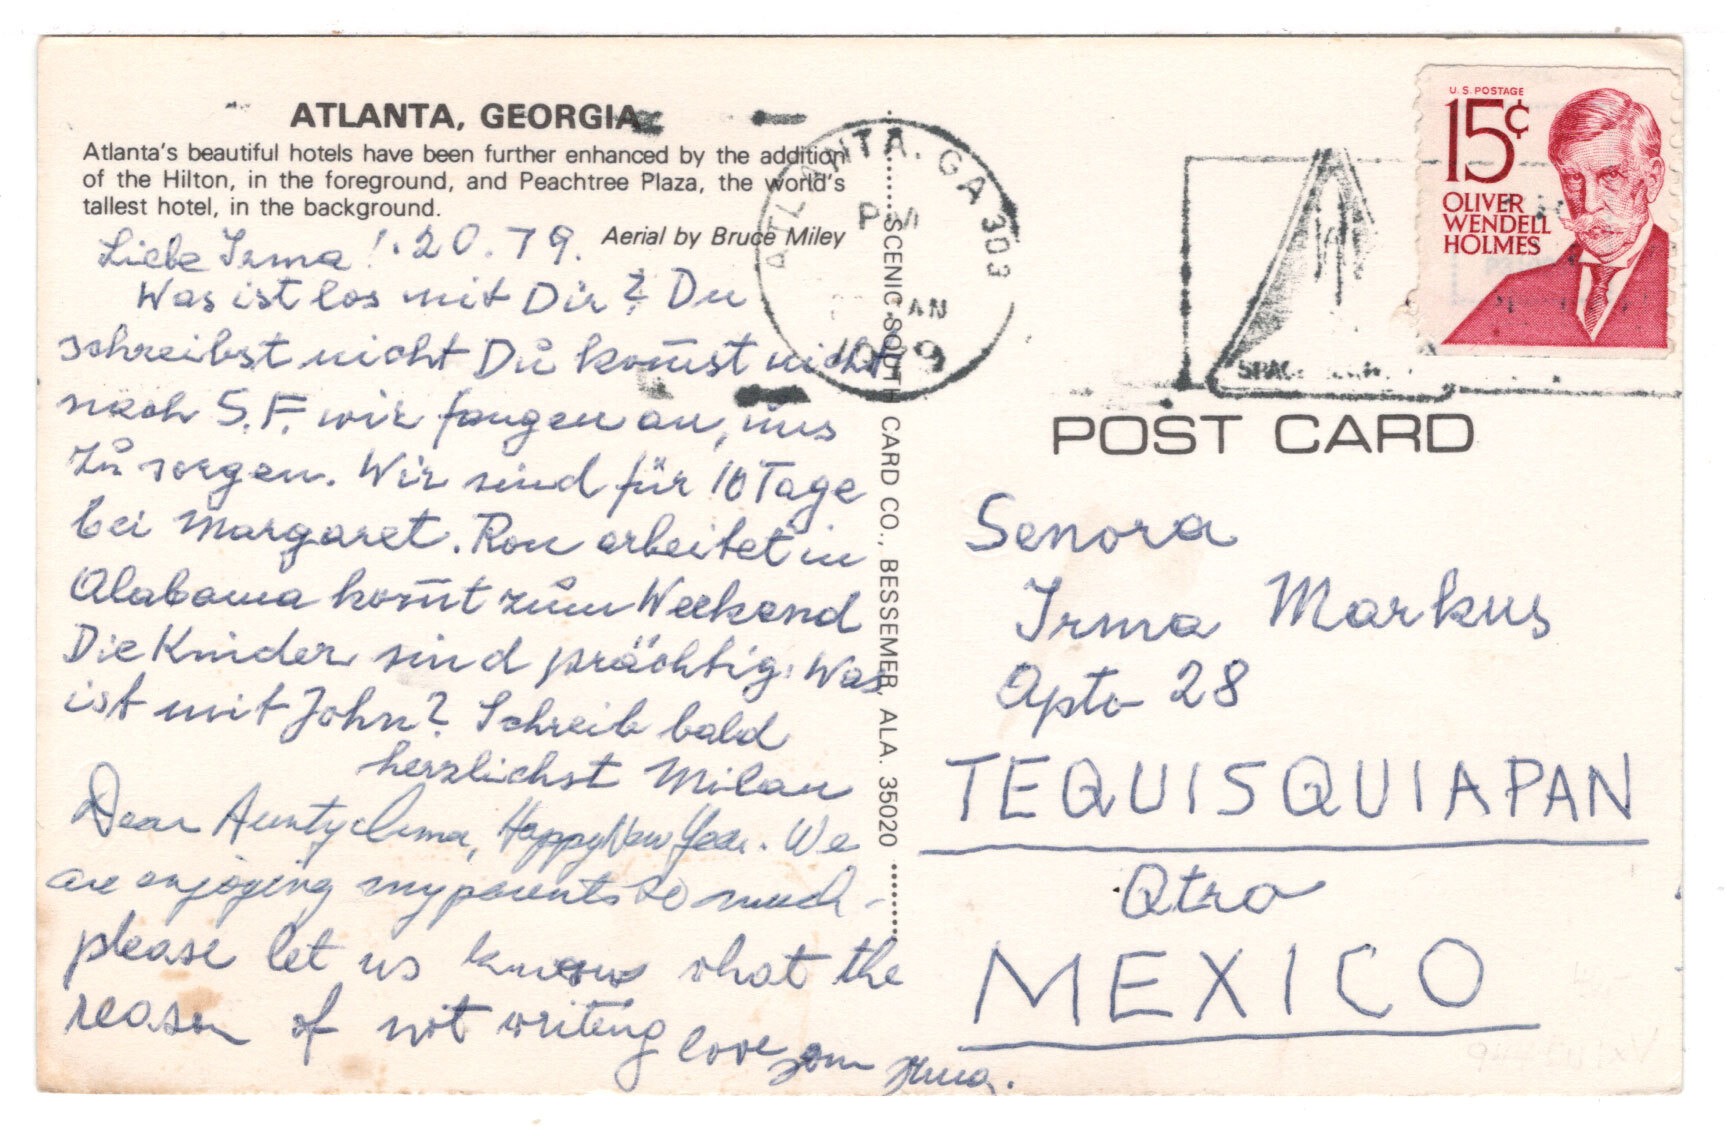 ATLANTA, GEORGIA
Atlanta's beautiful hotels have been further enhanced by the addition
of the Hilton, in the foreground, and Peachtree Plaza, the world's
tallest hotel, in the background.
Aerial by Bruce Miley
Liebe Irma! 1.20.79.
Was ist los mit Dir? Du
schreibst nicht Du kom̄st nicht
nach S.F. wir fangen an, uns
zu sorgen. Wir sind für 10 Tage
bei Margaret. Ron arbeitet in
Alabama kom̄t zum Weekend
Die Kinder sind prächtig. Was
ist mit John? Schreib bald
herzlichst Milan
Dear Aunty Irma, Happy New Year. We
are enjoying my parents so much -
please let us know what the
reason of not writing love
SCENIC SOUTH CARD CO., BESSEMER, ALA. 35020
ATLANTA, GA 303
PM
JAN
1979
U.S. POSTAGE
15¢
OLIVER
WENDELL
HOLMES
POST CARD
Senora
Irma Markus
Apto 28
TEQUISQUIAPAN
Qtro
MEXICO